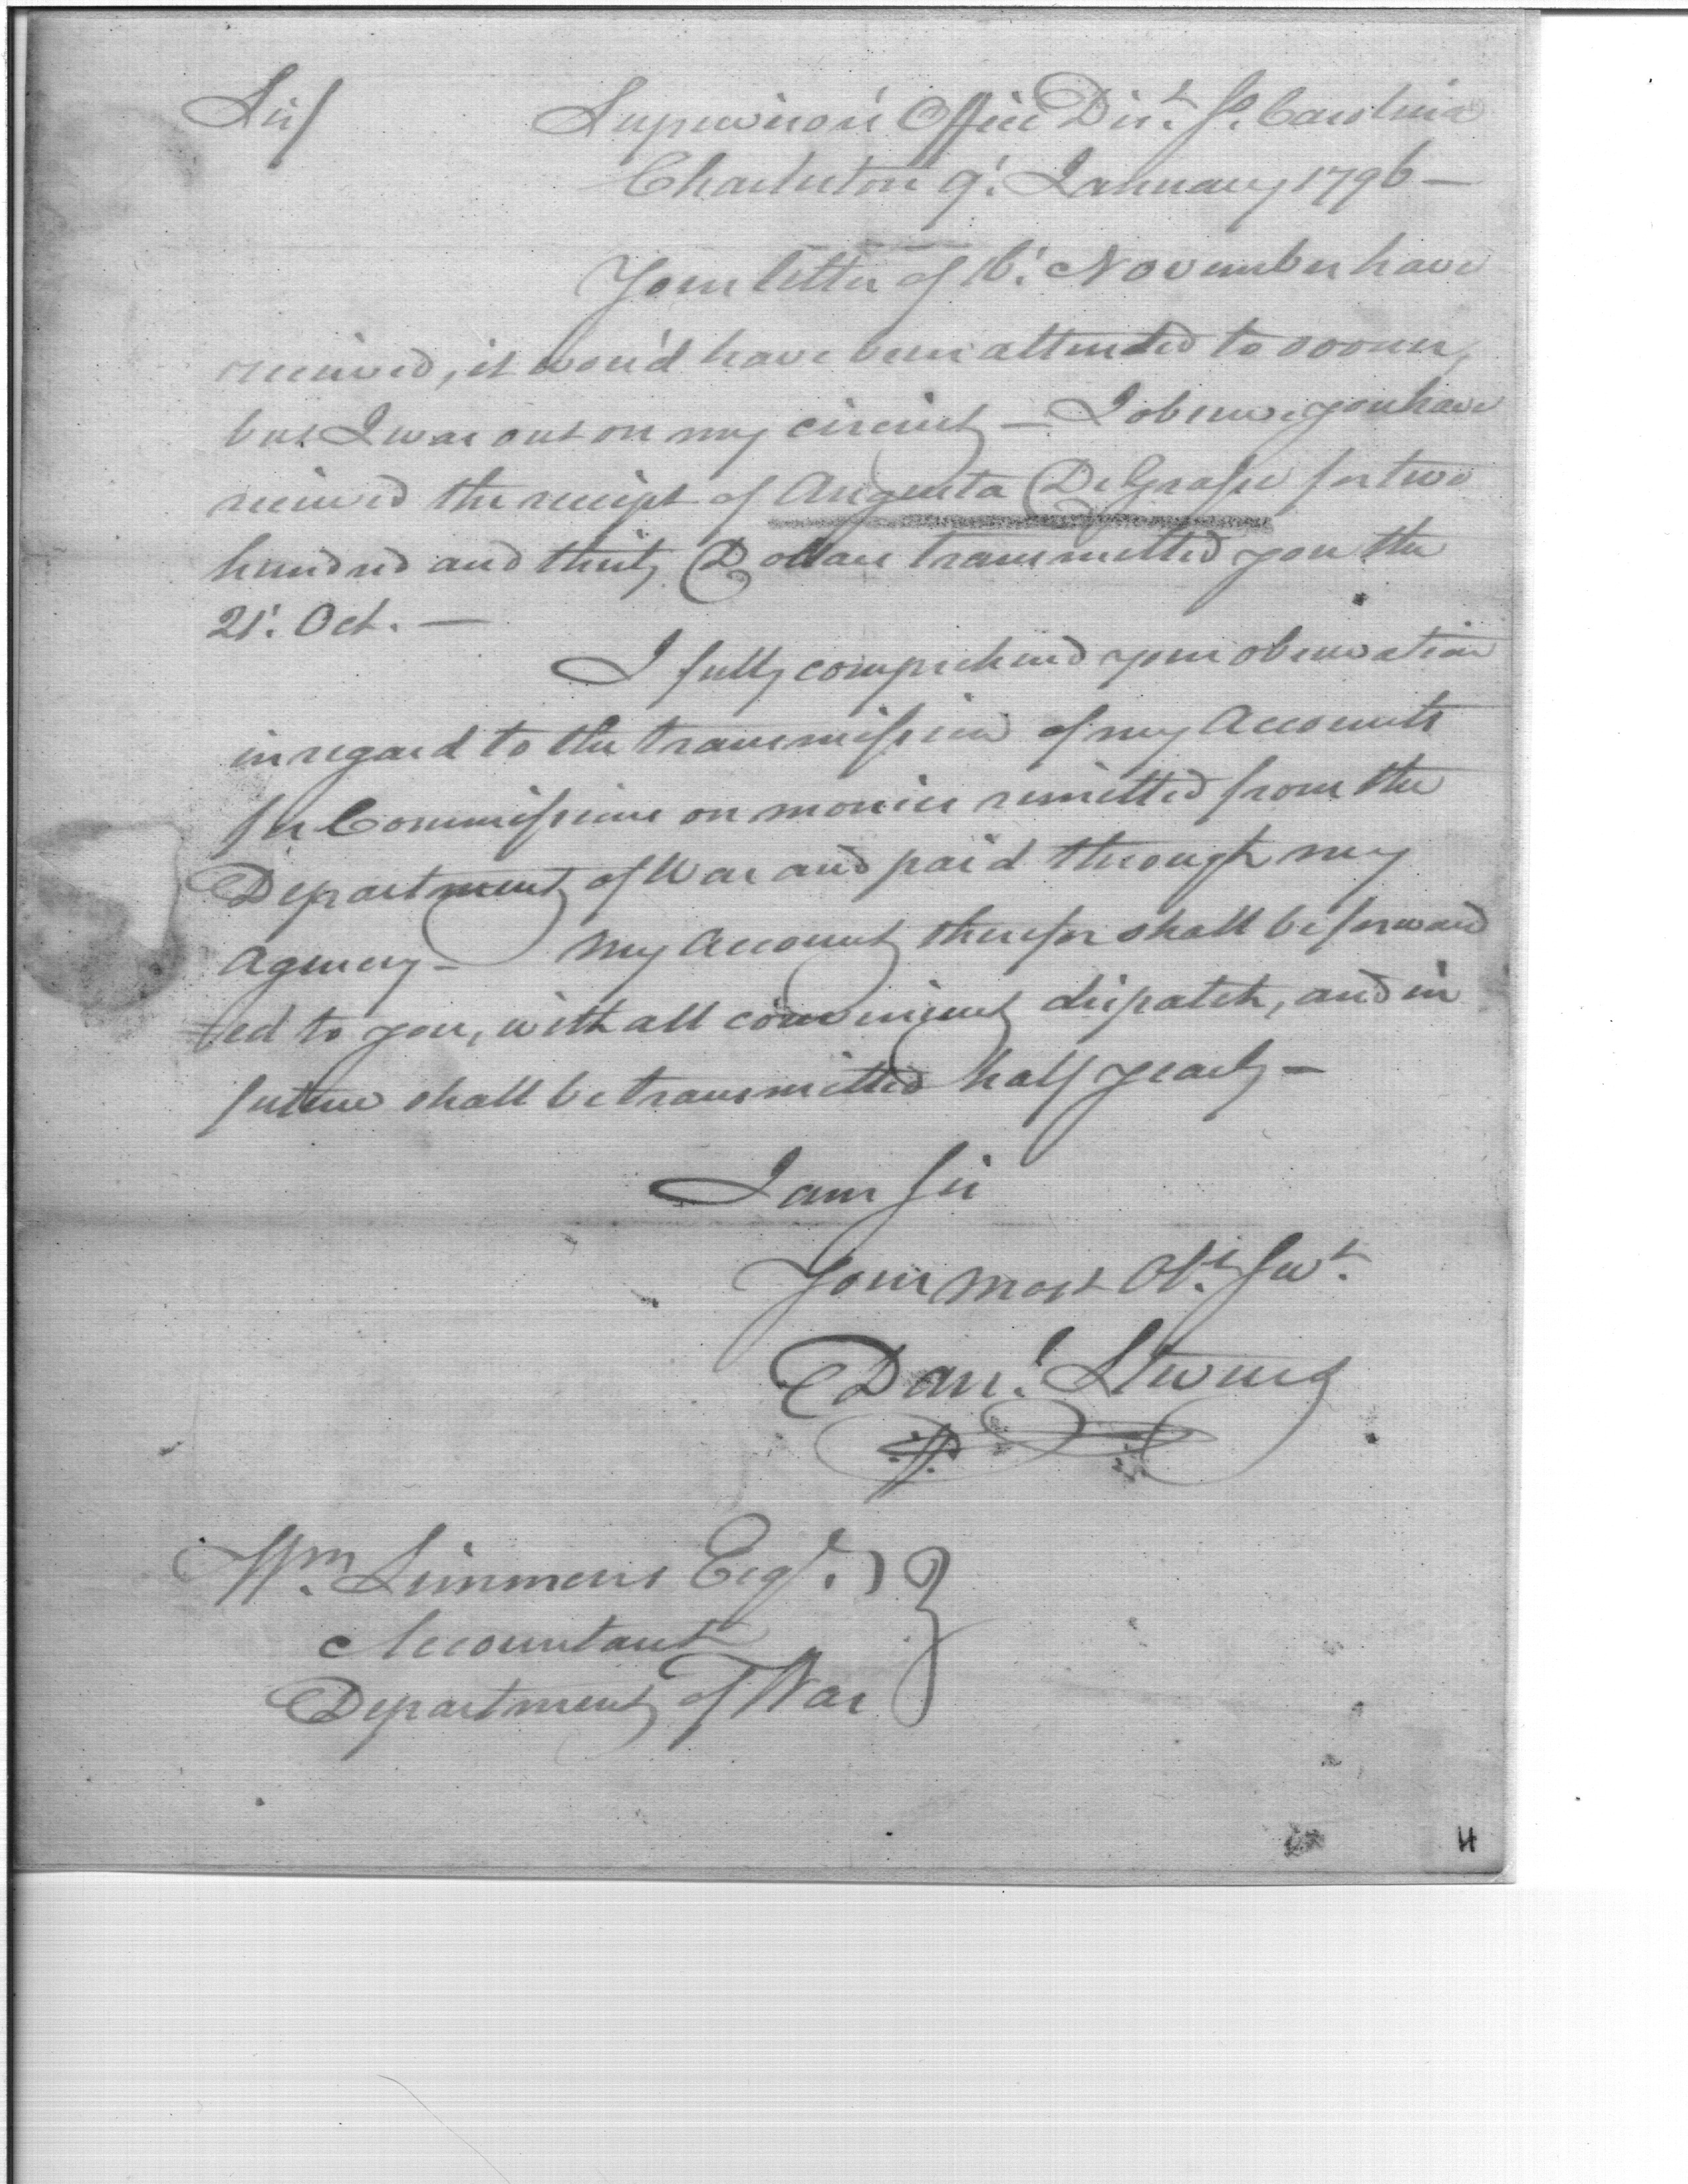 Sir/ Supervisor's Office Dist. So. Carolina
Charleston 9' January 1796 —
Your letter of 16' November have
received, it wou'd have been attended to sooner,
but I was out on my circuit — I observe you have
received the receipt of Augusta DeGrasse for two
hundred and thirty Dollars transmitted you the
21' Oct. —
I fully comprehend your observation
in regard to the transmission of my Accounts
for Commissions on monies remitted from the
Department of War and paid through my
Agency — My Account therefor shall be forward
ed to you, with all convenient dispatch, and in
future shall be transmitted half yearly —
I am Sir
Your most Obt. Sevt.
Danl. Stevens
Wm. Simmons Esqr.
Accountant
Department of War
4